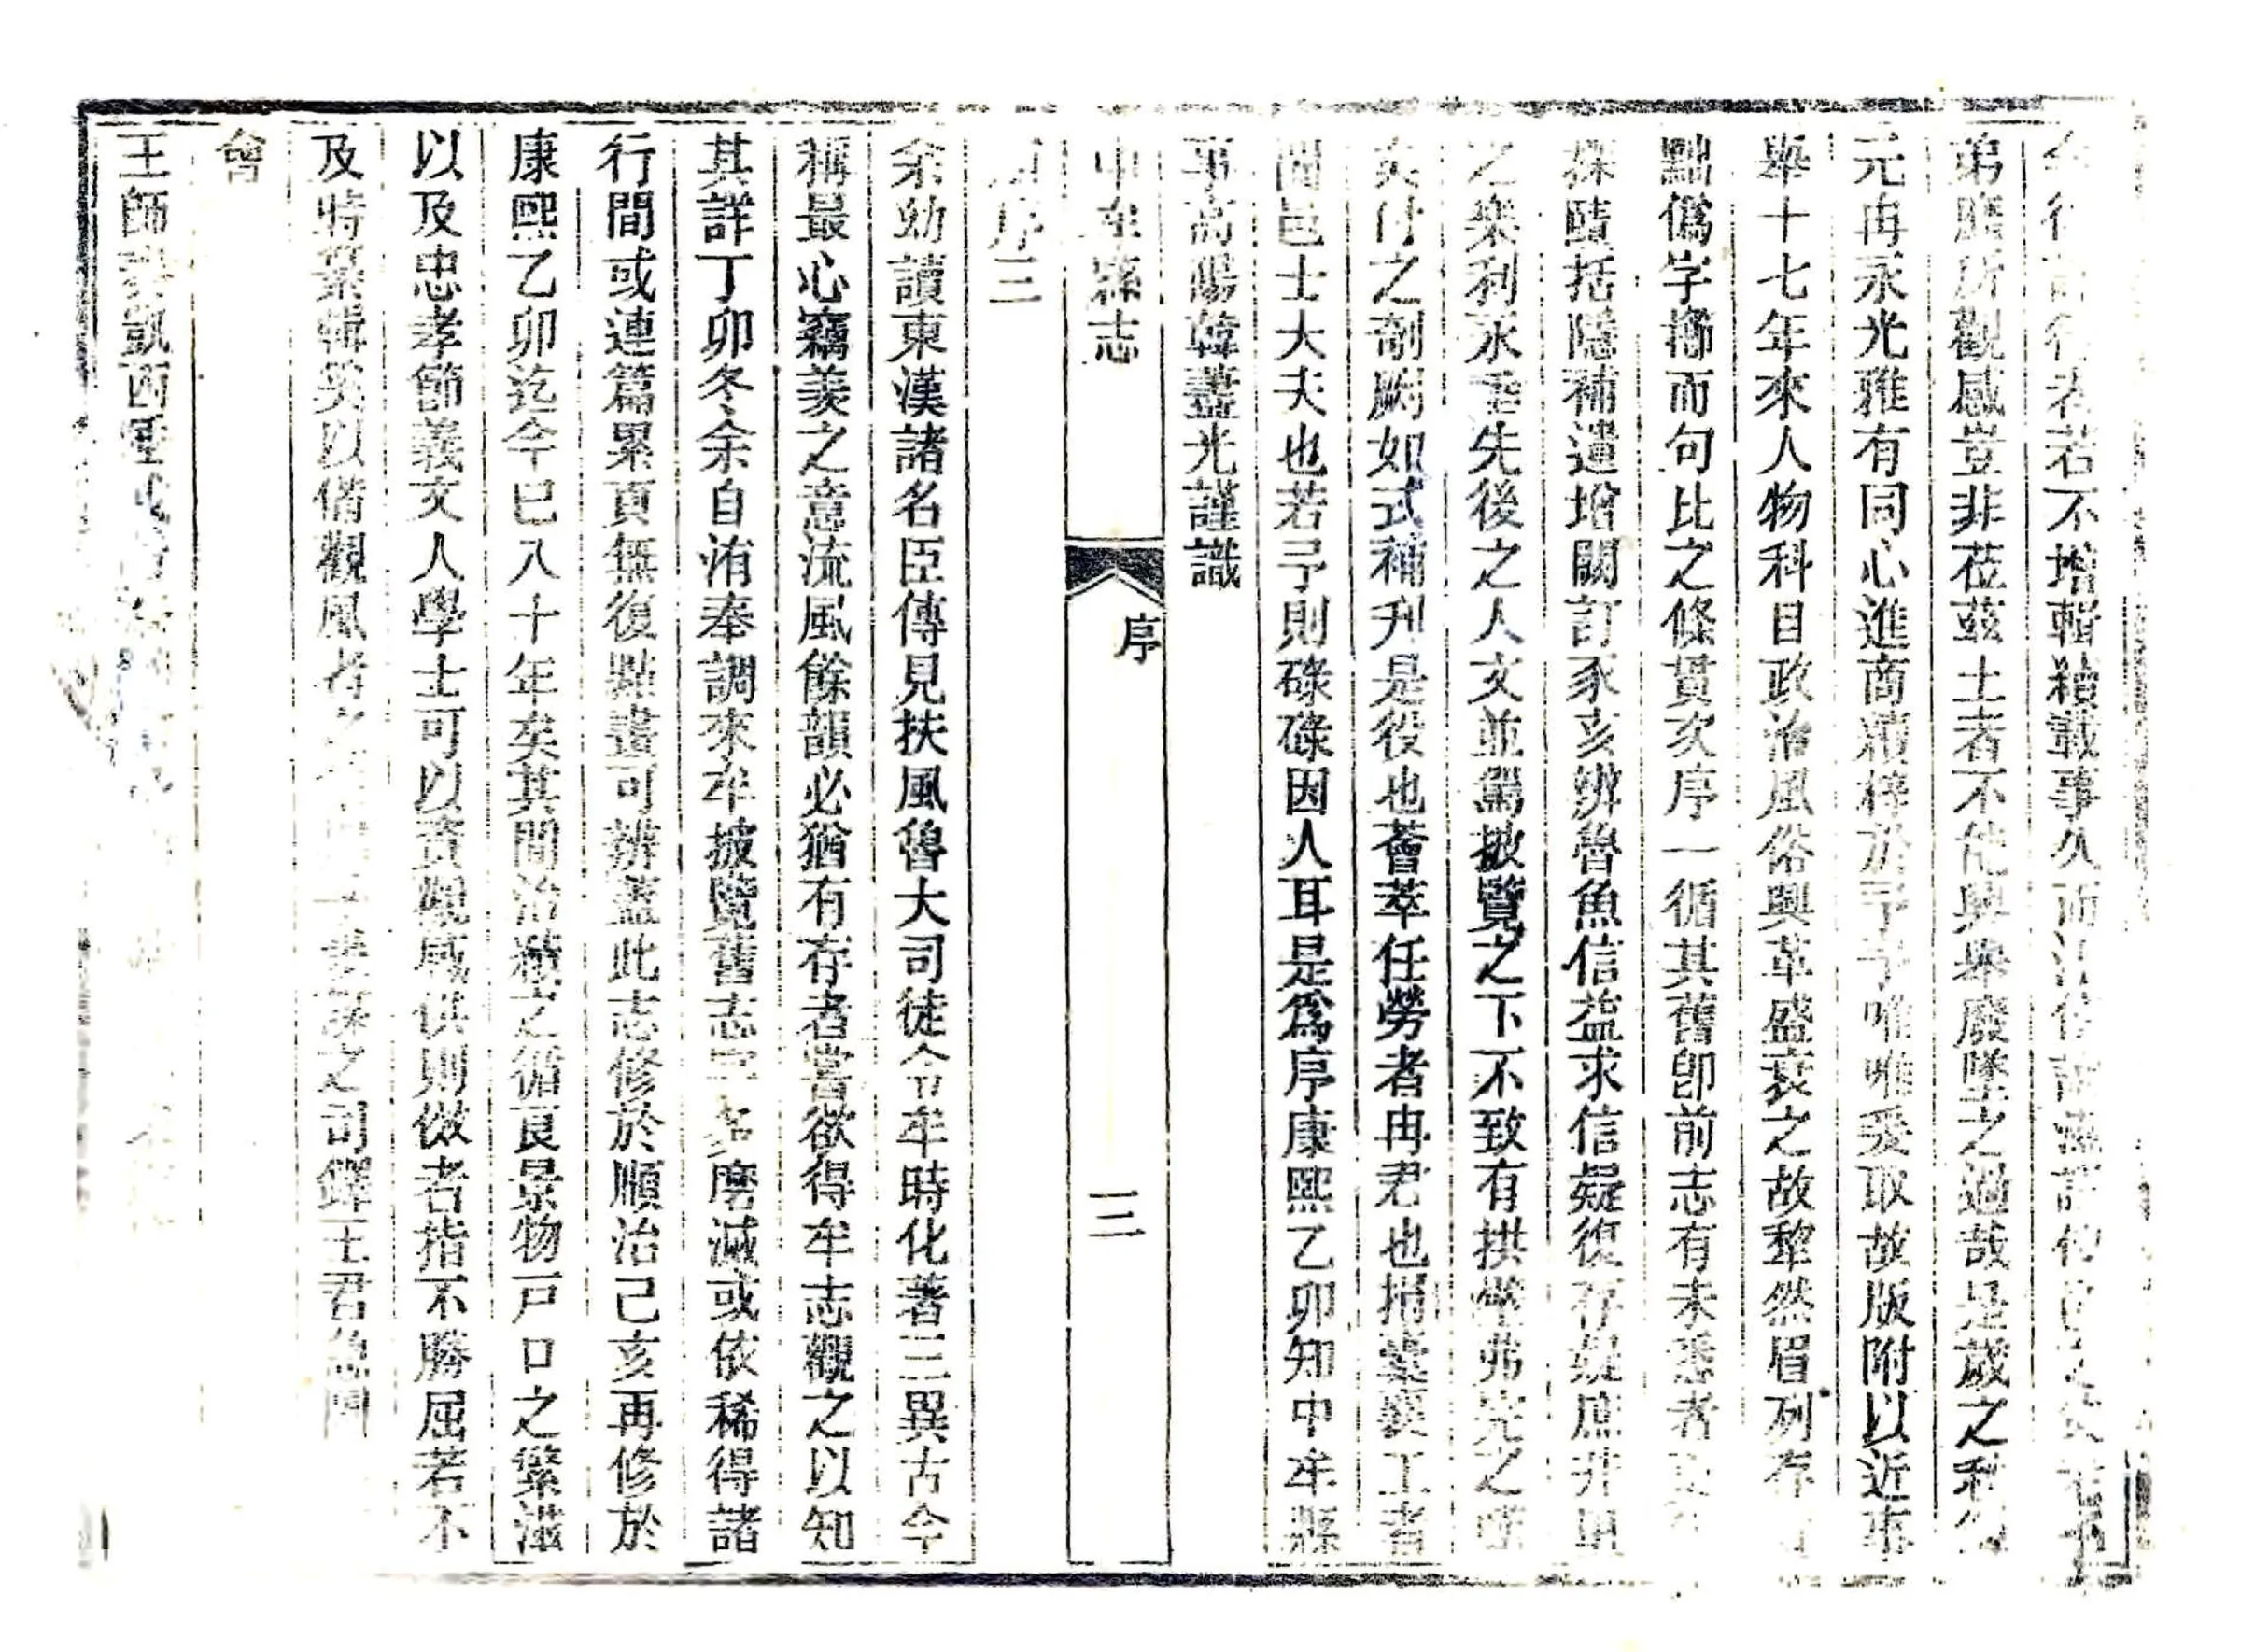 若不增輯續載事久而
弟廣所觀感豈非莅茲土者不能興舉廢墜之過哉是歲之秋
元冉永光雅有同心進商續梓於予予唯唯爰取故版附以近事
舉十七年來人物科目政治風俗興革盛衰之故犂然眉列存
黜僞字櫛而句比之條貫次序一循其舊卽前志有未悉者
探賾括隱補遺增闕訂豕亥辨魯魚信益求信疑復存疑庶非
之樂利永垂先後之人文並駕披覽之下不致有拱璧弗完之嘆
矣付之剞劂如式補刋是役也薈萃任勞者冉君也捐橐襄工者
閤邑士大夫也若予則碌碌因人耳是爲序康熙乙卯知中牟縣
事高陽韓藎光謹識
中牟縣志
序
三
序三
余幼讀東漢諸名臣傳見扶風魯大司徒令中牟時化著三異古今
稱最心竊羨之意流風餘韻必猶有存者嘗欲得牟志觀之以知
其詳丁卯冬余自洧奉調來牟披覽舊志字多磨滅或依稀得諸
行間或連篇累頁無復點畫可辨蓋此志修於順治己亥再修於
康熙乙卯迄今已八十年矣其間治績之循良景物戸口之繁滋
以及忠孝節義文人學士可以資觀感供則傚者指不勝屈若不
及時纂輯奚以備觀風者之司鐸王君
會
王師奏凱西